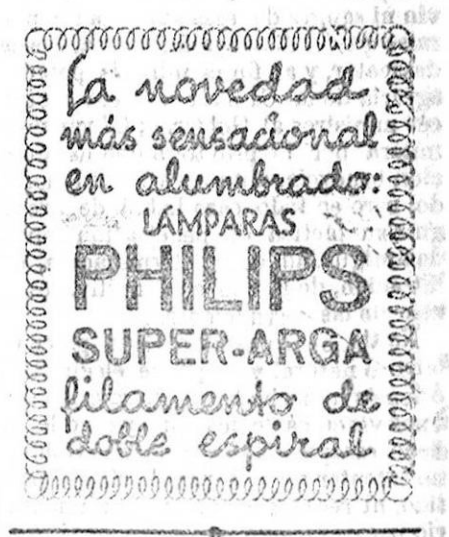 La novedad
más sensacional
en alumbrado:
LAMPARAS
PHILIPS
SUPER-ARGA
filamento de
doble espiral